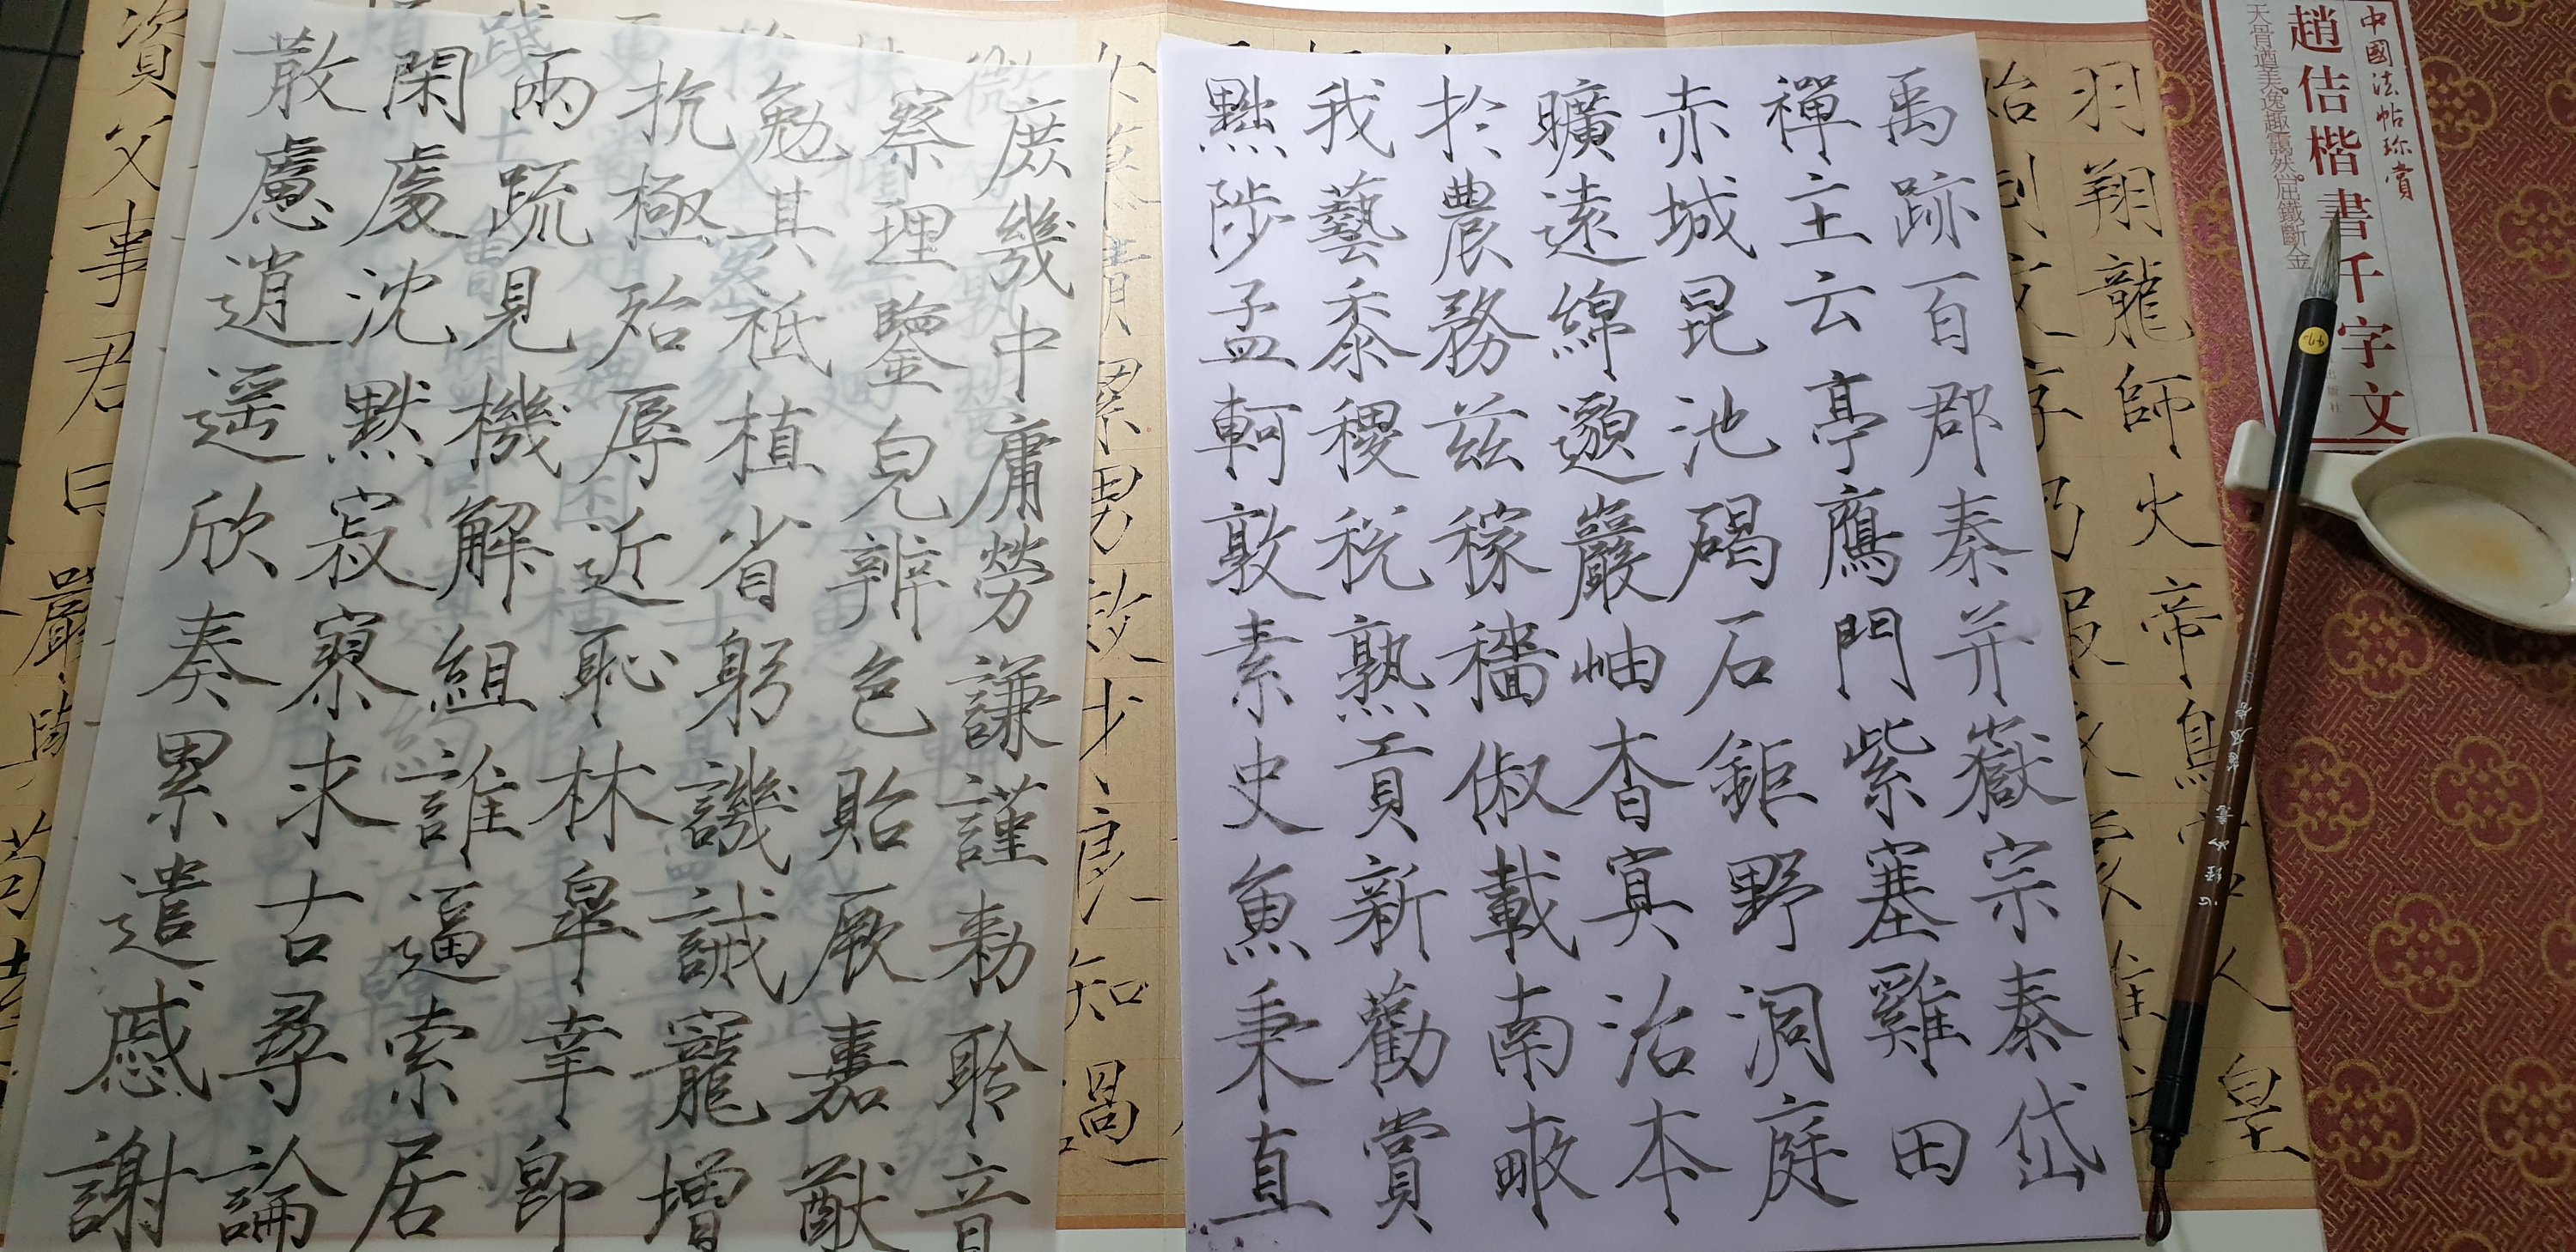 中國法帖珍賞
趙佶楷書千字文
天骨遒美。逸趣靄然。屈鐵斷金
羽翔龍師火帝鳥官人皇
始制文字乃服衣裳推
禹跡百郡秦并嶽宗泰岱
禪主云亭鴈門紫塞雞田
赤城昆池碣石鉅野洞庭
曠遠綿邈巖岫杳冥治本
於農務茲稼穡俶載南畝
我藝黍稷稅熟貢新勸賞
黜陟孟軻敦素史魚秉直
男效才良知過
庶幾中庸勞謙謹勅聆音
察理鑒皃辨色貽厥嘉猷
勉其祗植省躬譏誡寵增
抗極殆辱近恥林皋幸即
兩疏見機解組誰逼索居
閑處沈默寂寥求古尋論
散慮逍遙欣奏累遣慼謝
資父事君曰嚴與